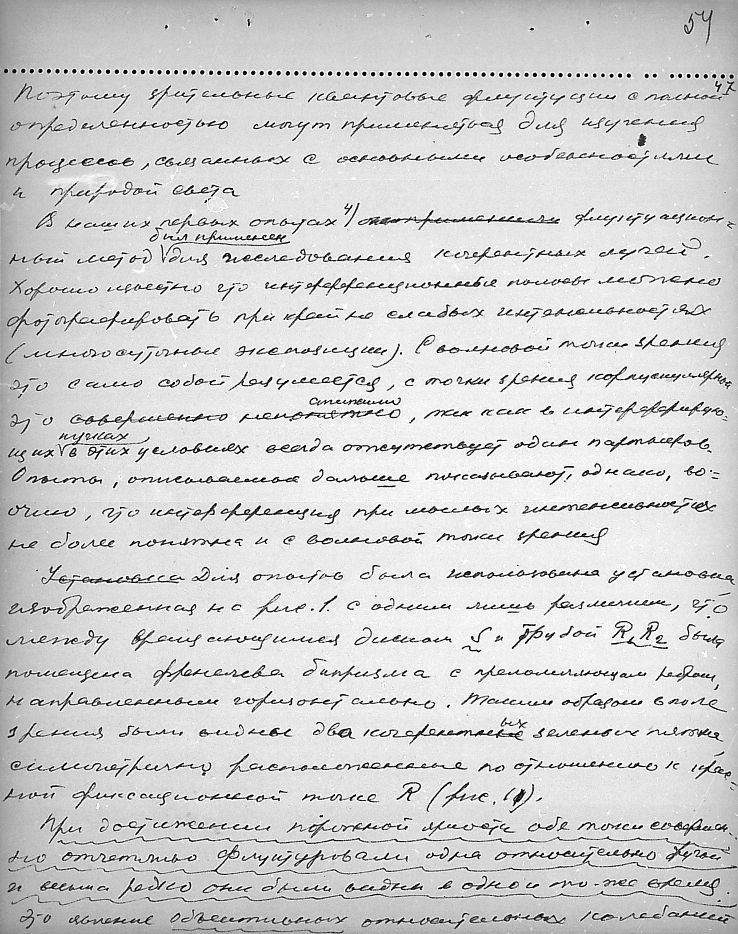 54
47
Поэтому зрительные квантовые флуктуации с полной
определенностью могут применяться для изучения
процессов, связанных с основными особенностями
и природой света
В наших первых опытах 4) флуктуацион=
был применен
ный метод для исследования когерентных лучей.
Хорошо известно что интерференционные полосы можно
фотографировать при крайне слабых интенсивностях
(многосуточные экспозиции). С волновой точки зрения
это само собой разумеется, с точки зрения корпускулярной
это совершенно непонятно, так как в интерферирую-
пучках
щих в этих условиях всегда отсутствует один партнеров.
Опыты, описываемые дальше показывают, однако, во=
очию, что интерференция при малых интенсивностях
не более понятна и с волновой точки зрения
Установка Для опытов была использована установка
изображенная на рис. 1. с одним лишь различием, что
между вращающимся диском S и трубой R₁ R₂ была
помещена френелева бипризма с преломляющим ребром,
направленными горизонтально. Таким образом в поле
ых
зрения были видны два когерентные зеленых пятна
симметрично расположенные по отношению к крас-
ной фиксационной точке R (рис. 11).
При достижении пороговой яркости обе точки совершен-
но отчетливо флуктуровали одна относительно другой
и весьма редко они были видны в одно и то-же время.
Это явление объективных относительных колебаний